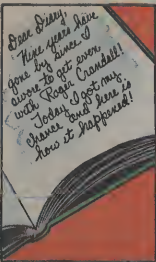 Dear Diary,
Nine years have
gone by since I
swore to get even
with Roger Crandall!!
Today I got my
chance and here is
how it happened!